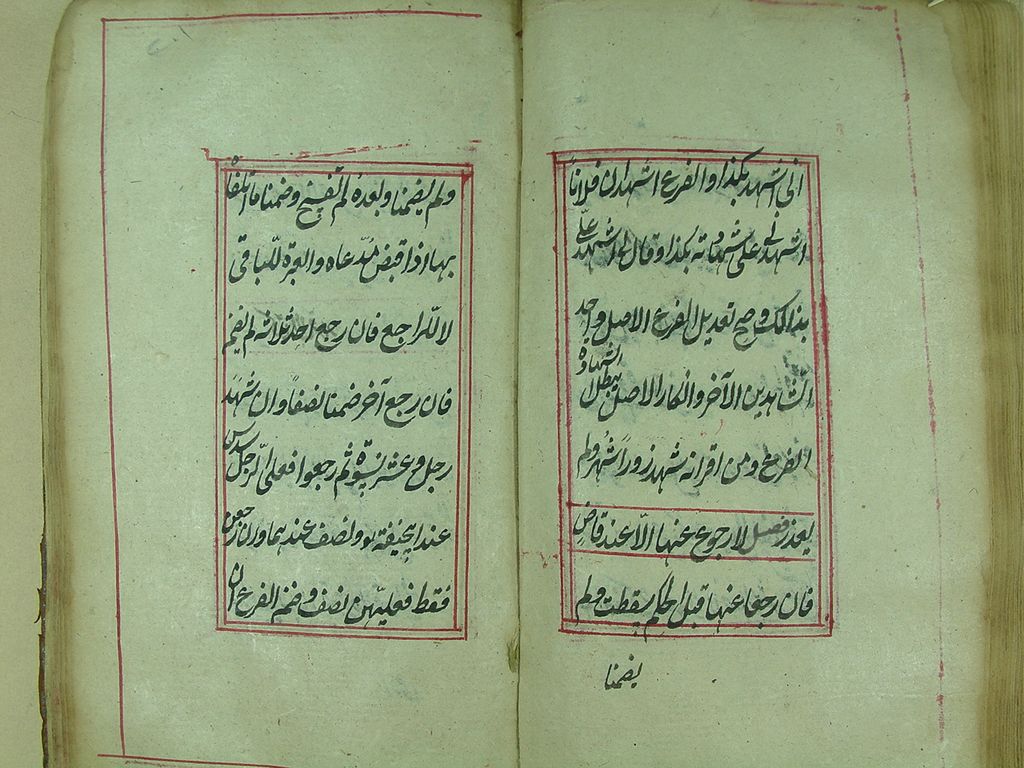 انى اشهد بكذا و الفرع اشهد ان فلانا
اشهدنى على شهادته بكذا و قال لى اشهد على
بذالك و صح تعديل الفرع الاصل و احد
الشاهدين الآخر و انكار الاصل يبطل الشهادة
الفرع و من اقر انه شهد زورا شهر و لم
يعذر فصل لا رجوع عنها الا عند قاض
فان رجعا عنها قبل الحكم سقطت و لم
يضمنا
و لم يضمنا و بعده لم يفسخ و ضمنا ما اتلفاه
بها اذا قبض مدعاه و العبرة للباقى
لا للراجع فان رجع احد ثلاثة لم يضمن
فان رجع آخر ضمنا نصفا و ان شهد
رجل و عشر نسوة ثم رجعوا فعلى الرجل سدس
عند ابى حنيفة و نصف عندهما و ان رجعن
فقط فعليهن نصف و ضمن الفرع ان